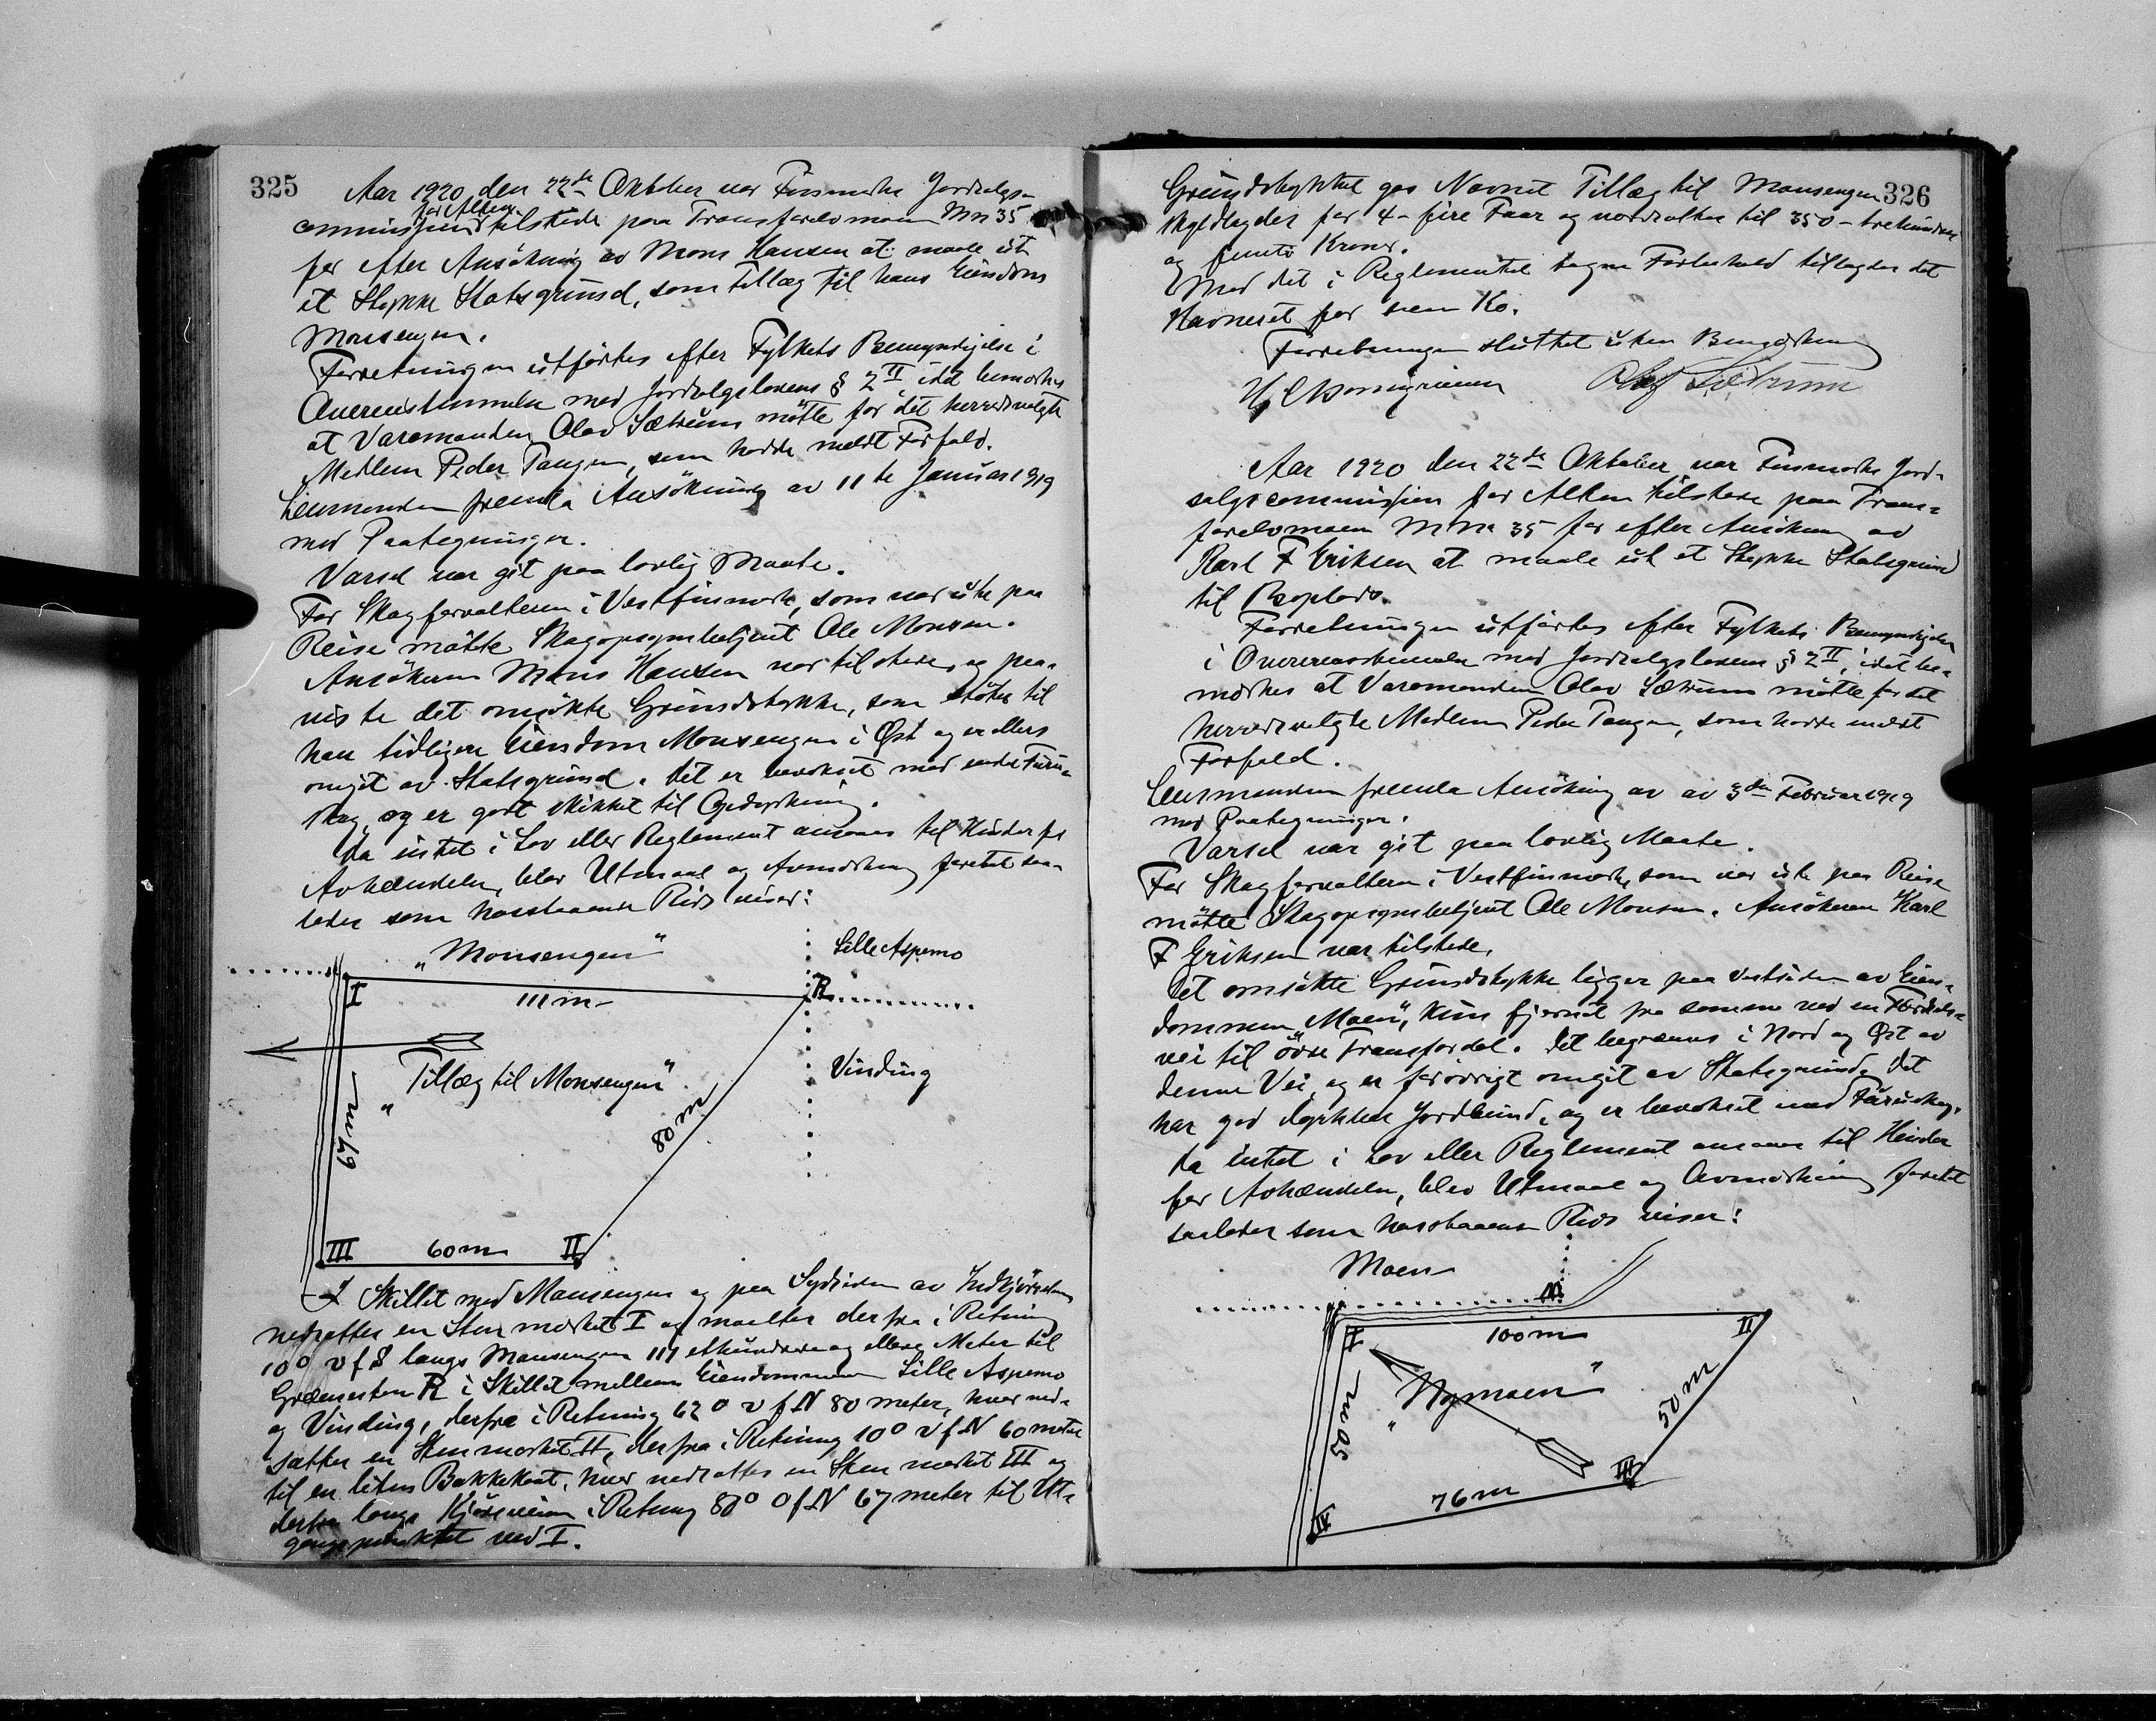 325
Aar 1920 den 22de Oktober var Finmarks Jordsalgs-
commission for Alten tilstede paa Transfarelvmoen M.n. 35
for efter Ansökning av Mons Hansen at maale ut
et Stykke Statsgrund, som Tillæg til hans Eiendom
Monsengen.
Forretningen utförtes efter Fylkets Bemyndigelse i
Overensstemmelse med Jordsalgslovens § 2 II idet bemerkes
at Varamanden Olav Sætrum mötte for det herredsvalgte
Medlem Peder Tangen, som hadde meldt Forfald.
Lensmanden fremla Ansökning av 11te Januar 1919
med Paategninger.
Varsel var git paa lovlig Maate.
For Skogforvalteren i Vestfinmark, som var ute paa
Reise mötte Skogopsynsbetjent Ole Monsen.
Ansökeren Mons Hansen var tilstede, og paa-
viste det omsökte Grundstykke, som stöter til
han tidligere Eiendom Monsengen i Øst og er ellers
omgit av Statsgrund. Det er bevokset med Furu-
skog, og er godt skikket til Opdyrkning.
Da intet i Lov eller Reglement ansaaes til Hinder for
Avhændelse, blev Utmaal og Avmerkning foretat saa-
ledes som hosstaaende Rids viser:
„Monsengen"
Lille Aspemo
I
111 m
R
„Tillæg til Monsengen"
Vinding
67 m
80 m
III
60 m
II
I Skillet med Monsengen og paa Sydsiden av Indkjörselen
nedsattes en Sten merket I og maaltes derfra i Retning
10° v f S langs Monsengen 111 ethundrede og elleve Meter til
Grændsesten R i Skillet mellem Eiendommene Lille Aspemo
og Vinding, derfra i Retning 62° v f N 80 meter, hvor ned-
sattes en Sten merket II, derfra i Retning 10° v f N 60 meter
til en liten Bakkekant, hvor nedsattes en Sten merket III og
derfra langs Kjöreveien i Retning 80° O f N 67 meter til Ut-
gangspunktet ved I.
326
Grundstykket gas Navnet Tillæg til Monsengen
skyldlegdes for 4 - fire Faar og verdsattes til 350 - trehundrede
og femti Kroner.
Med det i Reglementet tagne Forbehold tillagdes det
Havneret for een Ko.
Forretningen sluttet uten Bemerkning
Olaf Sætrum
Aar 1920 den 22de Oktober var Finmarks Jord-
salgscommission for Alten tilstede paa Trans-
farelvmoen M.nr. 35 for efter Ansökning av
Karl F Eriksen at maale ut et Stykke Statsgrund
til Boplads.
Forretningen utförtes efter Fylkets Bemyndigelse
i Overensstemmelse med Jordsalgslovens § 2 II, idet be-
merkes at Varamanden Olav Sætrum mötte for det
herredsvalgte Medlem Peder Tangen, som hadde meldt
Forfald.
Lensmanden fremla Ansökning av av 3die Februar 1919
med Paategninger.
Varsel var git paa lovlig Maate.
For Skogforvalteren i Vestfinmark, som var ute paa Reise
mötte Skogopsynsbetjent Ole Monsen. Ansökeren Karl
F Eriksen var tilstede.
Det omsökte Grundstykke ligger paa Vestsiden av Eien-
dommen „Moen", kun fjernet fra samme ved en Færdsels-
vei til övre Transfardal. Det begrænses i Nord og Øst av
denne Vei og er forövrigt omgit av Statsgrund. Det
har god dyrkbar Jordbund, og er bevokset med Furuskog.
Da intet i Lov eller Reglement ansaaes til Hinder
for Avhændelse, blev Utmaal og Avmerkning foretat
saaledes som hosstaaende Rids viser:
Moen
I
100 m
II
„Nymoen"
50 m
50 m
III
76 m
IV